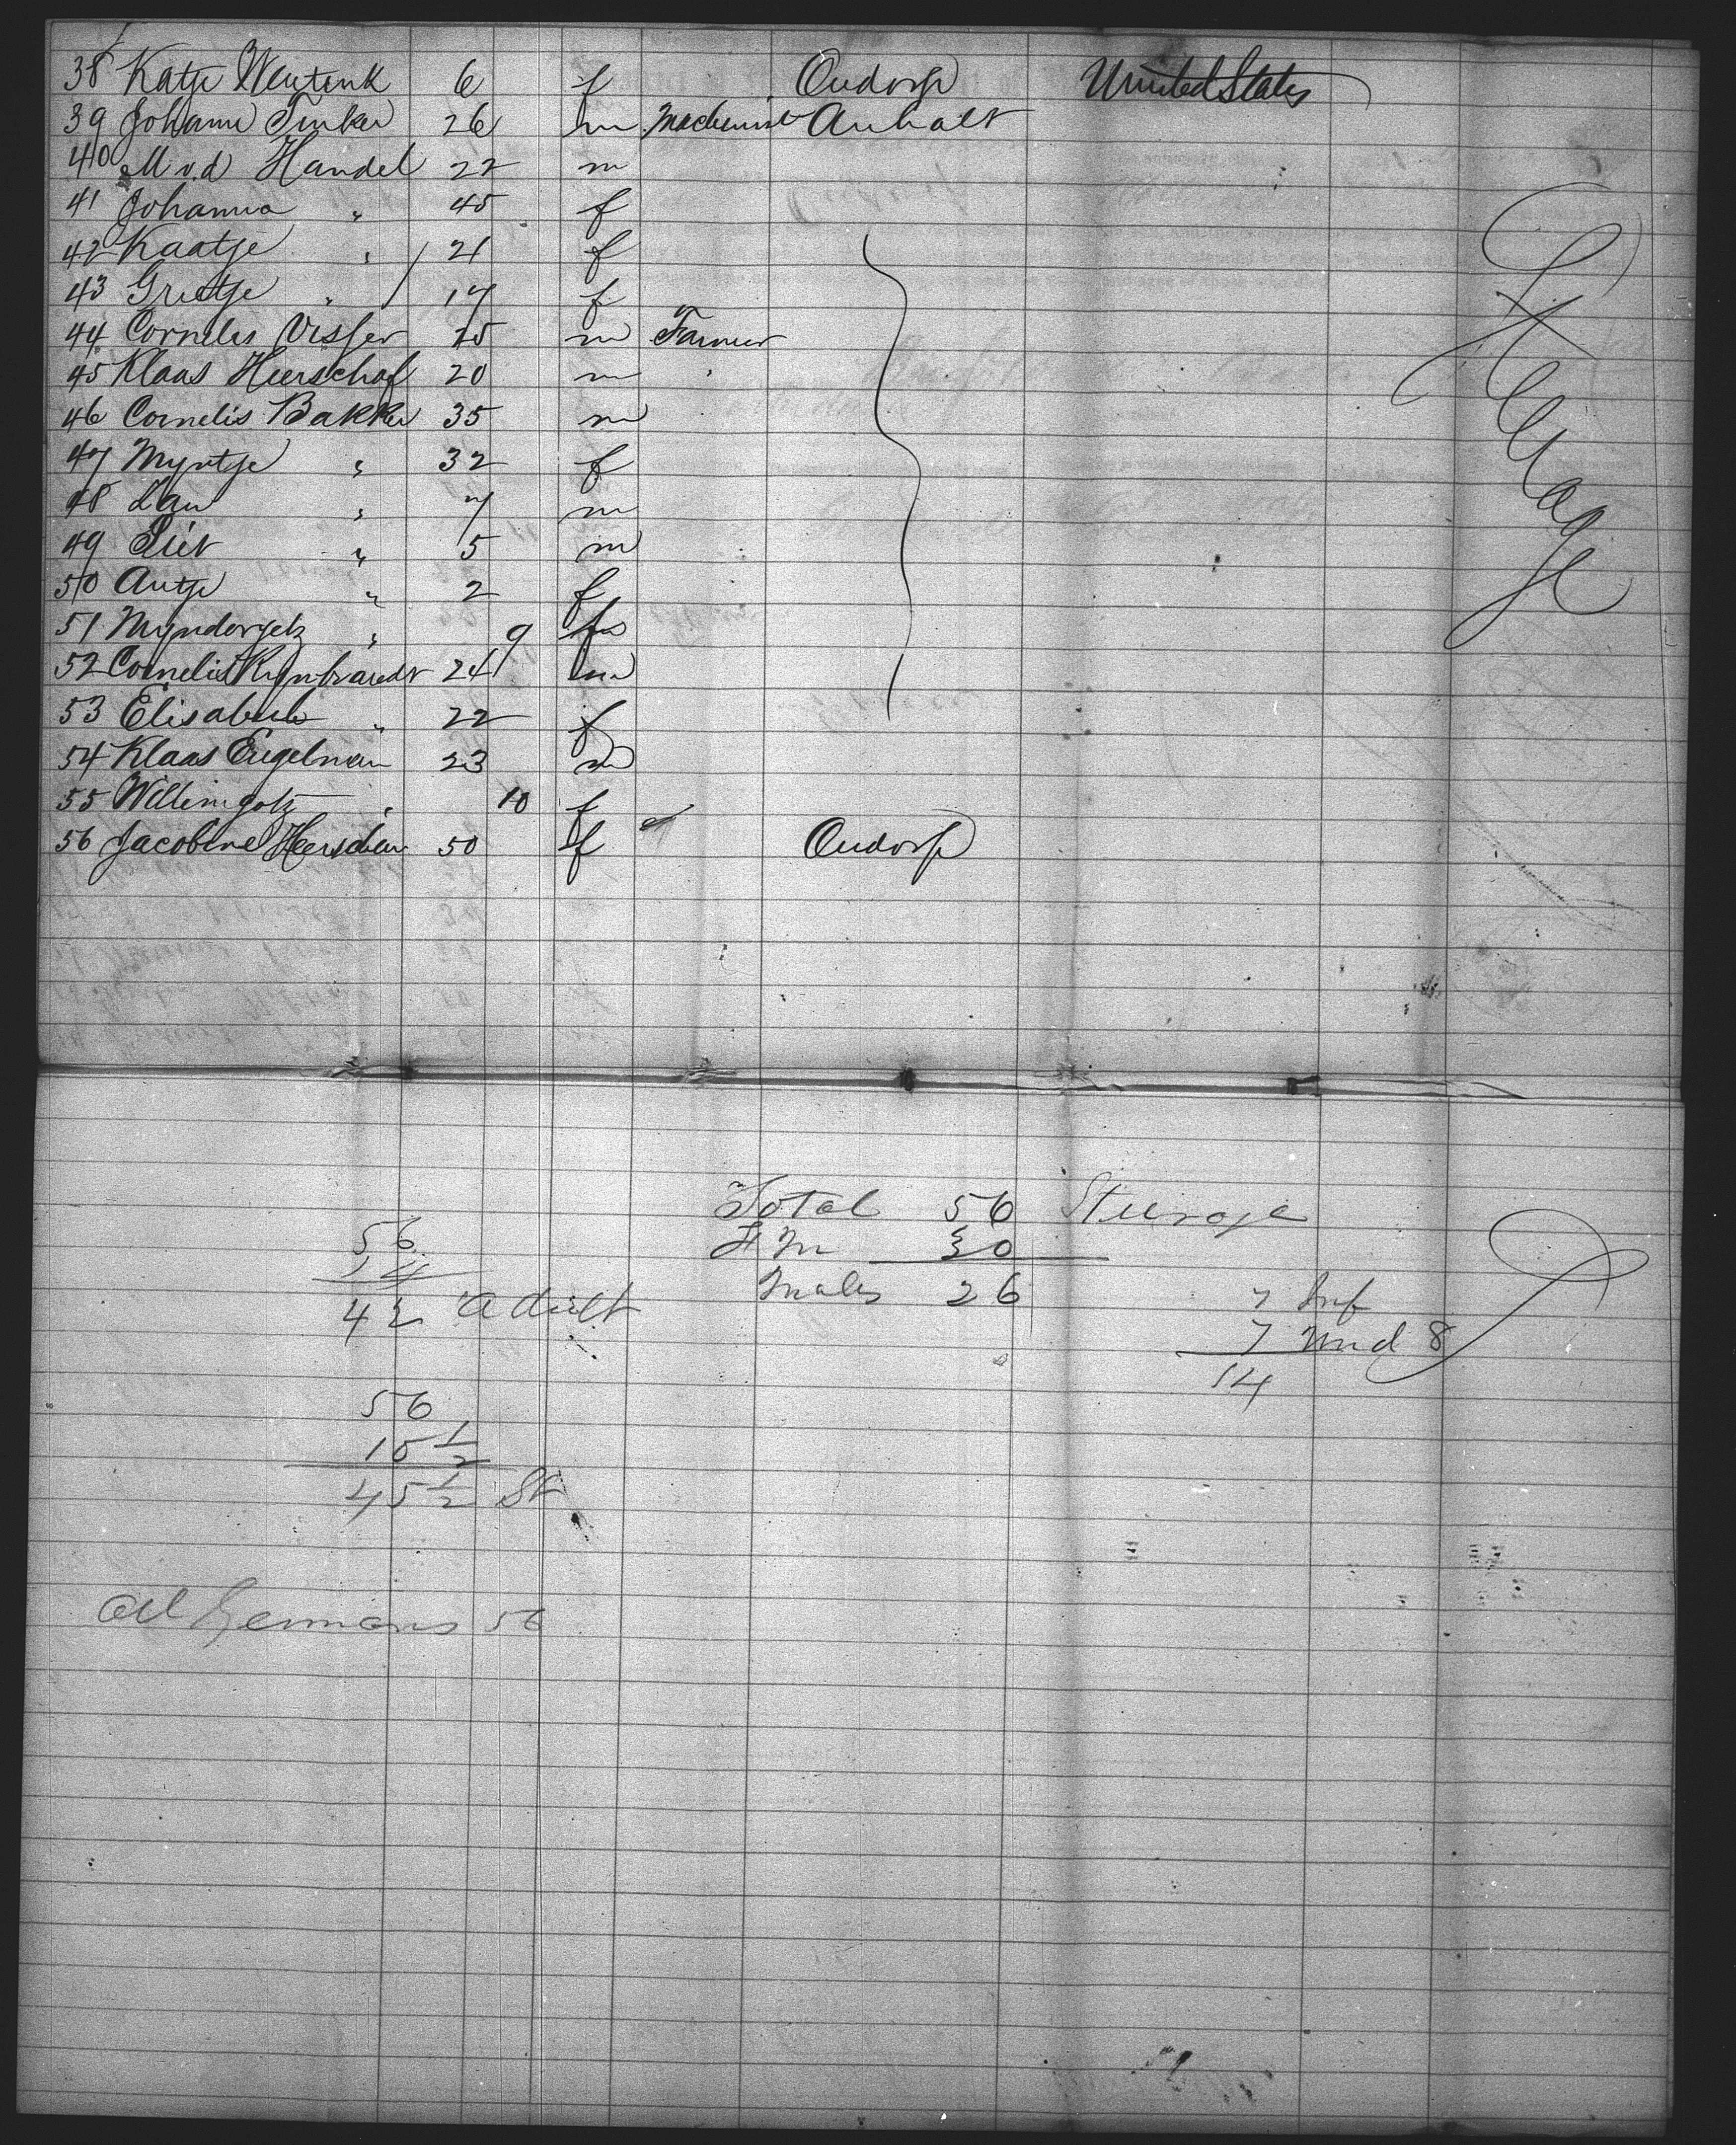 38 Katje Wentink 6 f Oudorp United States
39 Johann Tinker 26 m Machinist Anhalt
40 M v.d Handel 22 m
41 Johanna " 45 f
42 Kaatje " 21 f
43 Grietje " 17 f
44 Cornelis Visser 25 m Farmer
45 Klaas Heerschap 20 m
46 Cornelis Bakker 35 m
47 Myntje " 32 f
48 Jan " 7 m
49 Piet " 5 m
50 Antje " 2 f
51 " 9
52 Cornelis Rynbrandt 24 m
53 Elisabeth " 22 f
54 Klaas Engelman 23 m
55 " 10 f
56 Jacobine 50 f Oudorp
Steerage
Total 56 Steerage
Fm 30
Males 26
56
14
42 adult
7 Inf
7 und 8
14
56
10 1/2
45 1/2 St
All Germans 56